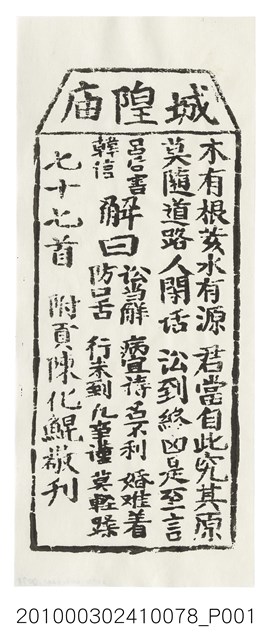 城隍庙
木有根荄水有源 君當自此究其原
莫隨道路人閒话 讼到終凶是至言
吕后害
韓信
解曰
讼宜解 病宜祷 名不利 婚难着
防口舌 行未到 凡事谨 莫輕躁
七十七首 附頁陳化鯤敬刊
201000302410078_P001